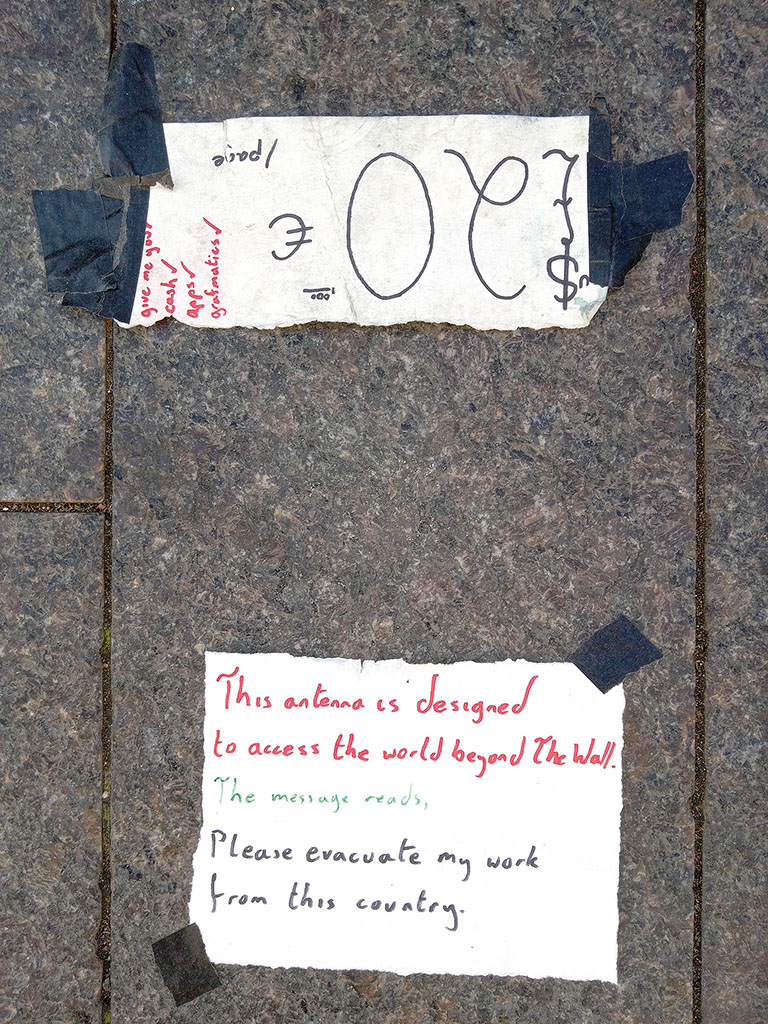 20 €
/page
give me your
cash ✓
apps ✓
grafmatics ✓
This antenna is designed
to access the world beyond The Wall.
The message reads,
Please evacuate my work
from this country.